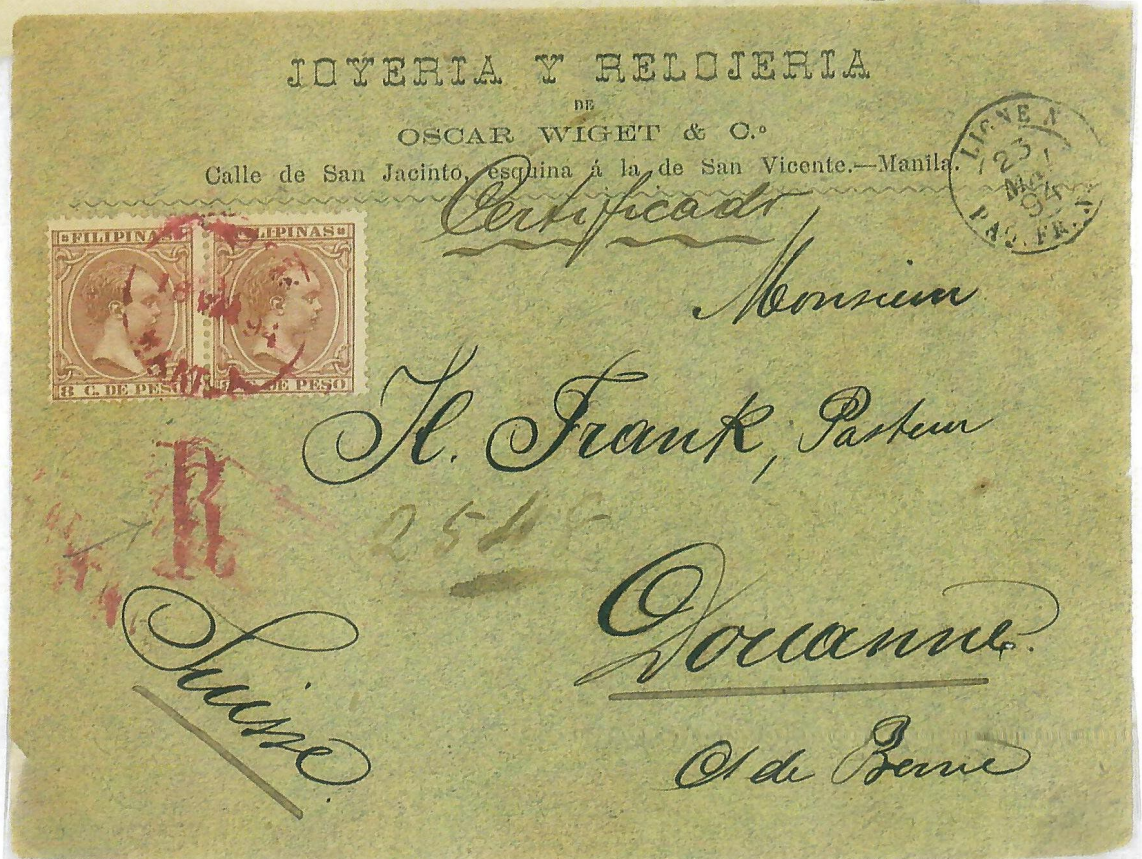 JOYERIA Y RELOJERIA
DE
OSCAR WIGET & C.º
Calle de San Jacinto, esquina á la de San Vicente.—Manila.
LIGNE N
23
MAI
94
PAQ. FR.
Certificado
FILIPINAS FILIPINAS
8 C. DE PESO DE PESO
Monsieur
H. Frank, Pasteur
R
2548
Douanne.
Suisse.
Ct de Berne